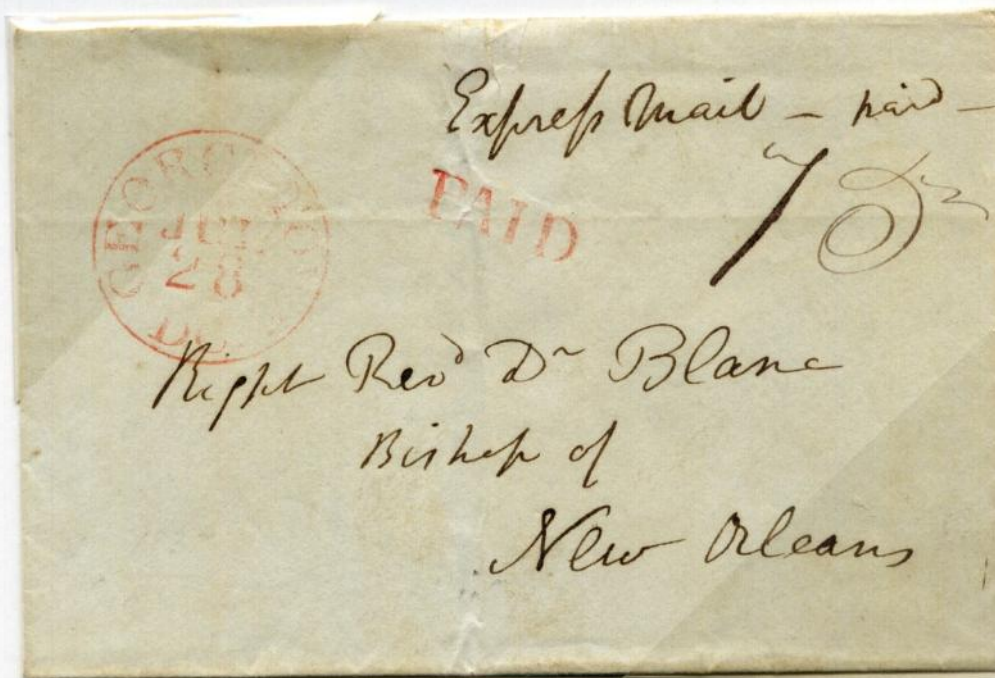 Express Mail – paid –
PAID
75
GEORGETOWN
JUL
28
D.C.
Right Revd Dr Blanc
Bishop of
New Orleans